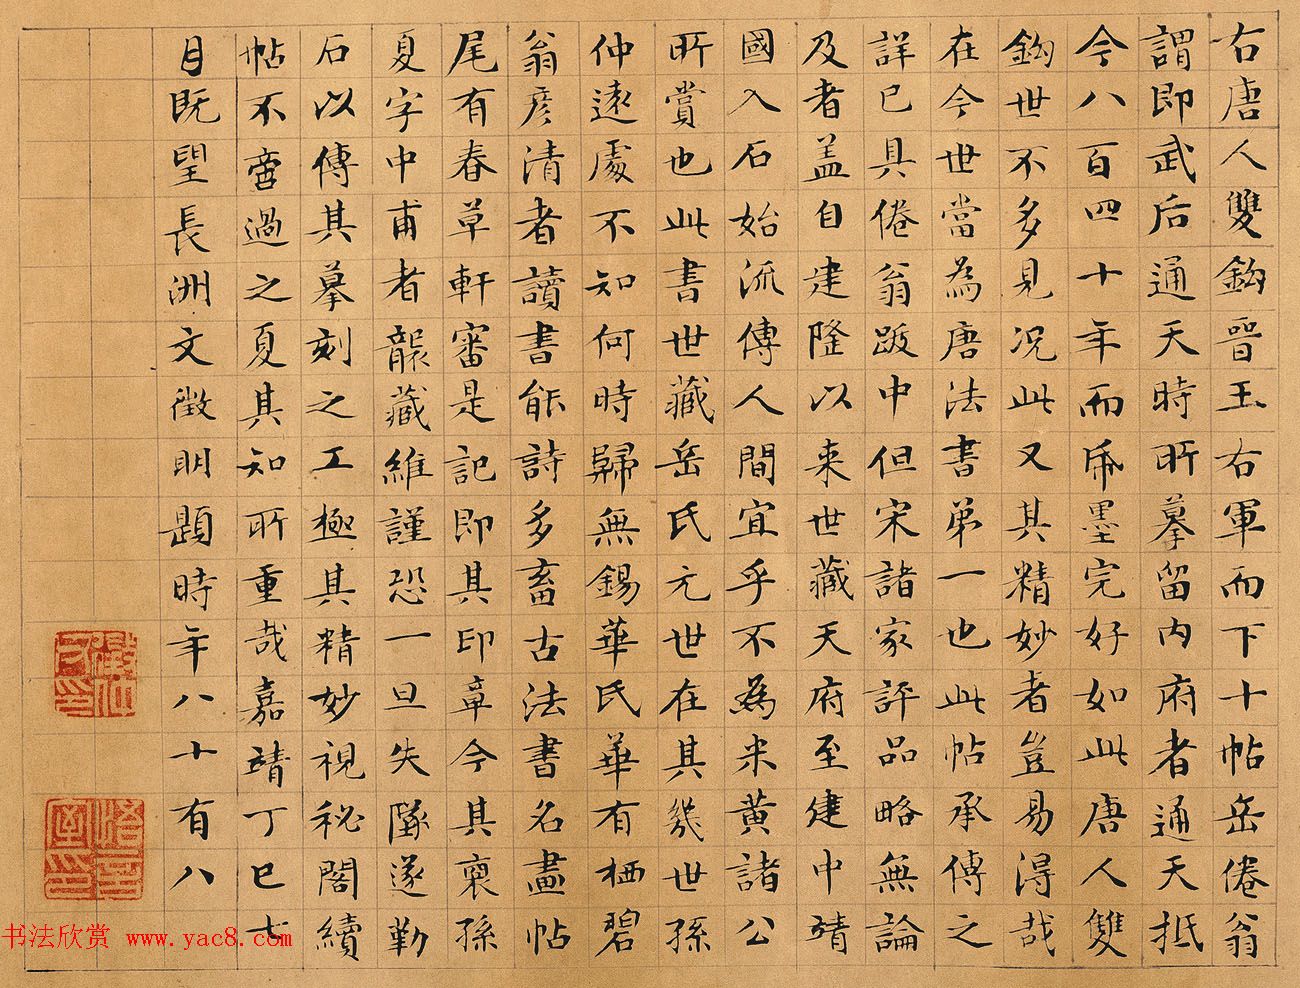 右唐人雙鈎晉王右軍而下十帖岳倦翁
謂即武后通天時所摹留内府者通天抵
今八百四十年而帋墨完好如此唐人雙
鈎世不多見况此又其精妙者豈易得哉
在今世當為唐法書第一也此帖承傳之
詳已具倦翁跋中但宋諸家評品略無論
及者盖自建隆以来世藏天府至建中靖
國入石始流傳人間宜乎不為米黄諸公
所賞也此書世藏岳氏元世在其幾世孫
仲遠處不知何時歸無錫華氏華有栖碧
翁彦清者讀書能詩多畜古法書名畫帖
尾有春草軒審是記即其印章今其裔孫
夏字中甫者襲藏維謹恐一旦失墜遂勒
石以傳其摹刻之工極其精妙視秘閣續
帖不啻過之夏其知所重哉嘉靖丁巳七
月既望長洲文徵明題時年八十有八
文徵明印
悟言室印
书法欣赏 www.yac8.com